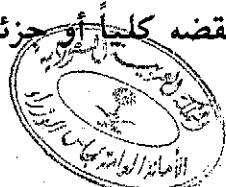 نقضه كلياً أو جزئ
المملكة العربية السعودية
الأمانة العامة لمجلس الوزراء